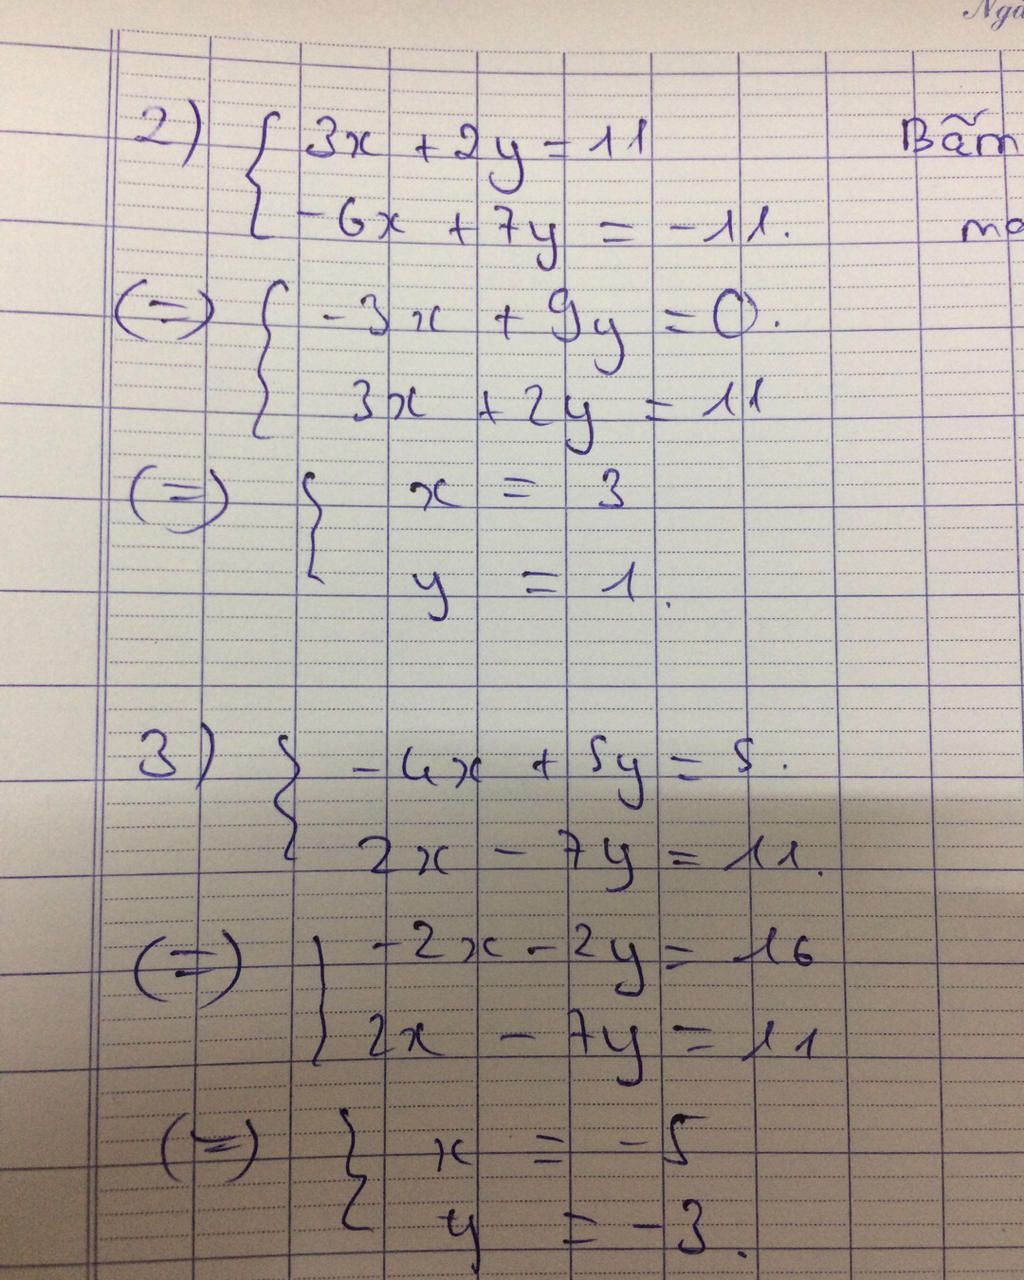 2) { 3x + 2y = 11
Bấm
-6x + 7y = -11.
(=) { -3x + 9y = 0.
3x + 2y = 11
(=) { x = 3
y = 1.
3) { -4x + 5y = 5.
2x - 7y = 11.
(=) { -2x - 2y = 16
2x - 7y = 11
(=) { x = -5
y = -3.